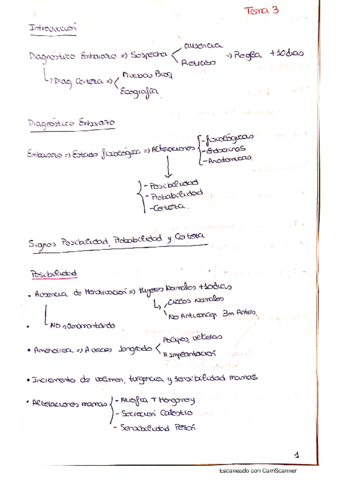 Tema 3
Introducción
Diagnóstico Embarazo => Sospecha < ausencia Retraso -> Regla +10 dias
-> Diag Certeza => < Pruebas Bioq Ecografía
Diagnóstico Embarazo
Embarazo => Estado fisiológico => Alteraciones
- fisiológicas
- Endocrinas
- Anatómicas
- Posibilidad
- Probabilidad
- Certeza
Signos Posibilidad, Probabilidad y Certeza
Posibilidad
• Ausencia de Menstruación => Mujeres Normales +10dias
Ciclos Normales
No Anticoncep 3m Antes
No amamantando
• Amenorrea => A veces
Implantación
• Incremento de volumen, turgencia y sensibilidad mamas
• Alteraciones mamas
- T Morgagni
- Secreción Calostro
- Sensibilidad
1
Escaneado con CamScanner